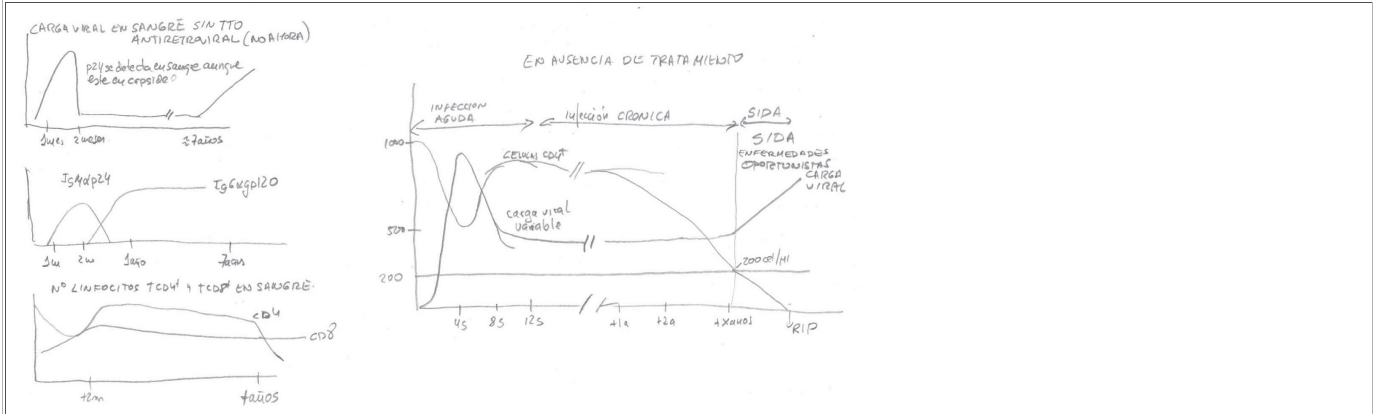 CARGA VIRAL EN SANGRE SIN TTO
ANTIRETROVIRAL (NO AHORA)
p24 se detecta en sangre aunque
este en capside
1mes 2meses ≥7años
IgMαp24 IgGαgp120
1m 2m 1año 7años
Nº LINFOCITOS TCD4+ Y TCD8+ EN SANGRE.
CD4
CD8
+2m 7años
EN AUSENCIA DE TRATAMIENTO
INFECCION
AGUDA
Infección CRONICA
SIDA
SIDA
ENFERMEDADES
OPORTUNISTAS
CARGA
VIRAL
1000
CELULAS CD4+
carga viral
variable
500
200 cel/Ml
200
4s 8s 12s +1a +2a +Xaños RIP